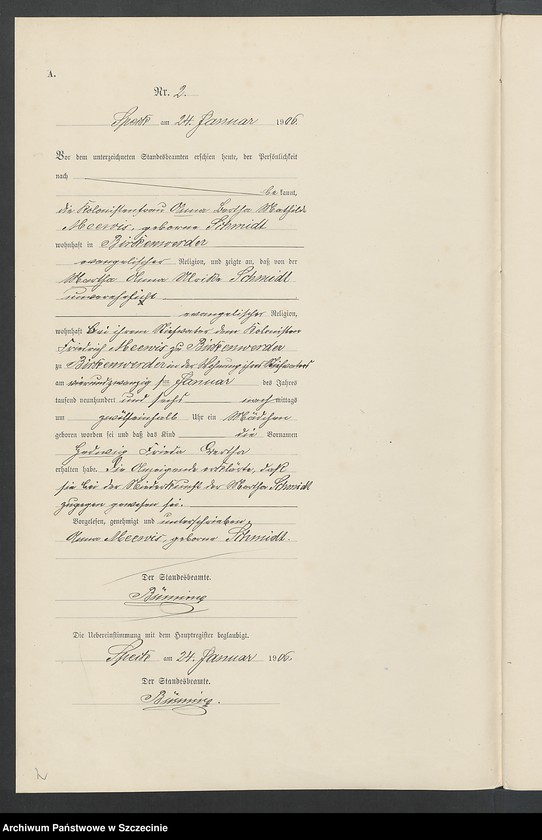 A.
Nr. 2.
Speck am 24. Januar 1906.
Vor dem unterzeichneten Standesbeamten erschien heute, der Persönlichkeit
nach
bekannt,
die Kolonistenfrau Anna Bertha Mathilde
Meewis, geborene Schmidt
wohnhaft in Birkenwerder
evangelischer Religion, und zeigte an, daß von der
Martha Anna Ulrike Schmidt
unverehelicht
evangelischer Religion,
wohnhaft bei ihrem Stiefvater dem Kolonisten
Friedrich Meewis zu Birkenwerder
zu Birkenwerder in der Wohnung ihres Stiefvaters
am vierundzwanzig ten Januar des Jahres
tausend neunhundert und sechs nach mittags
um zwölfeinhalb Uhr ein Mädchen
geboren worden sei und daß das Kind die Vornamen
Hedwig Frieda Bertha
erhalten habe. Die Anzeigende erklärte, daß
sie bei der Niederkunft der Martha Schmidt
zugegen gewesen sei.
Vorgelesen, genehmigt und unterschrieben
Anna Meewis, geborne Schmidt.
Der Standesbeamte.
Büning
Die Uebereinstimmung mit dem Hauptregister beglaubigt.
Speck am 24. Januar 1906.
Der Standesbeamte.
Büning.
Archiwum Państwowe w Szczecinie